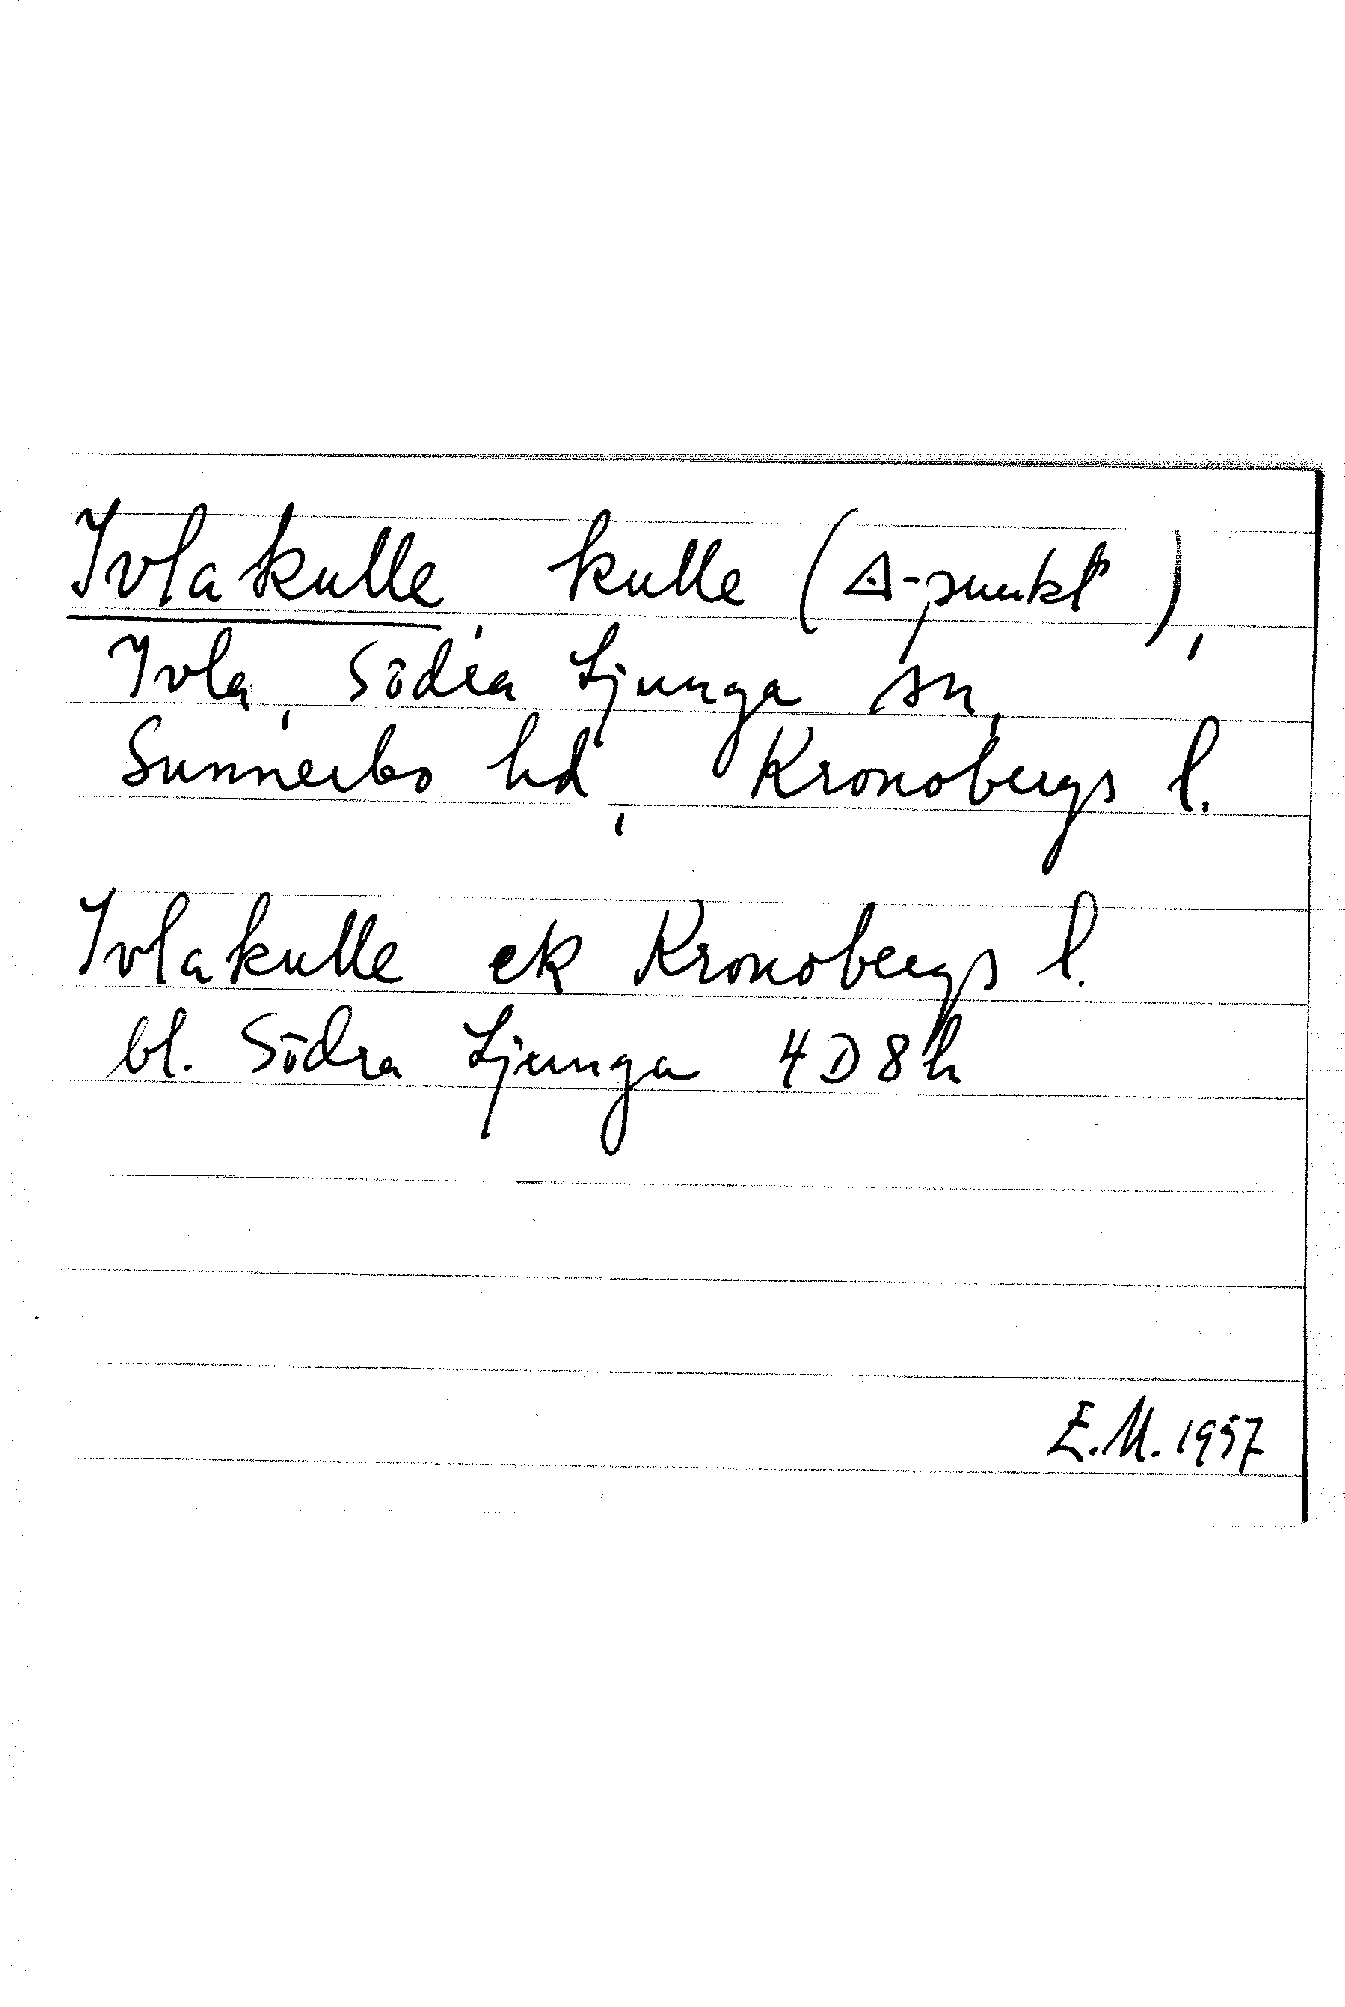 Ivlakulle, kulle (△-punkt),
Ivla, Södra Ljunga sn,
Sunnerbo hd, Kronobergs l.
Ivlakulle ek Kronobergs l.
bl. Södra Ljunga 4D8h
E.M. 1957